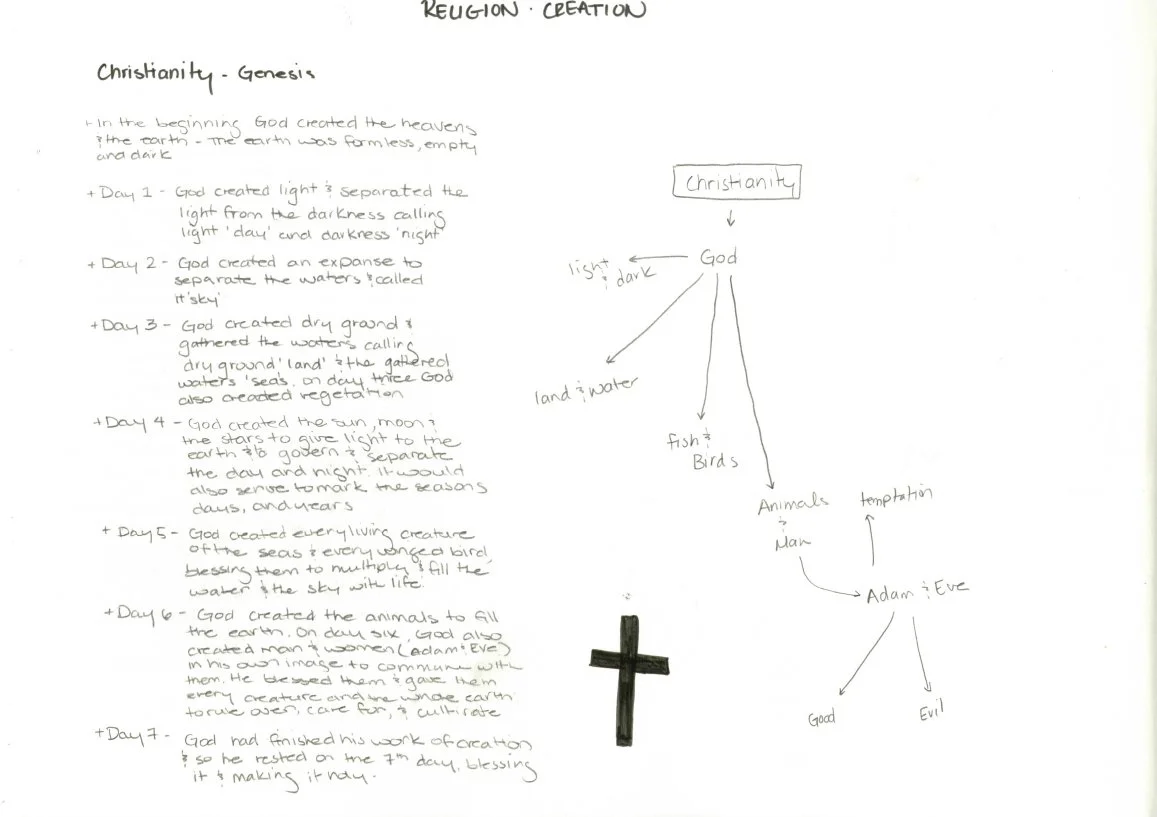 RELIGION · CREATION
Christianity - Genesis
+ In the beginning God created the heavens
& the earth - The earth was formless, empty
and dark
+ Day 1 - God created light & separated the
light from the darkness calling
light 'day' and darkness 'night'
+ Day 2 - God created an expanse to
separate the waters & called
it 'sky'
+ Day 3 - God created dry ground &
gathered the waters calling
dry ground 'land' & the gathered
waters 'seas'. on day thrice God
also creaded vegetation
+ Day 4 - God created the sun, moon &
the stars to give light to the
earth & to govern & separate
the day and night. It would
also serve to mark the seasons
days, and years
+ Day 5 - God created every living creature
of the seas & every winged bird,
blessing them to multiply & fill the
water & the sky with life.
+ Day 6 - God created the animals to fill
the earth. On day six, God also
created man & women (Adam & Eve)
in his own image to commune with
them. He blessed them & gave them
every creature and the whole earth
to rule over, care for, & cultivate
+ Day 7 - God had finished his work of creation
& so he rested on the 7th day, blessing
it & making it holy.
Christianity
God
light & dark
land & water
fish &
Birds
Animals
&
Man
temptation
Adam & Eve
Good
Evil